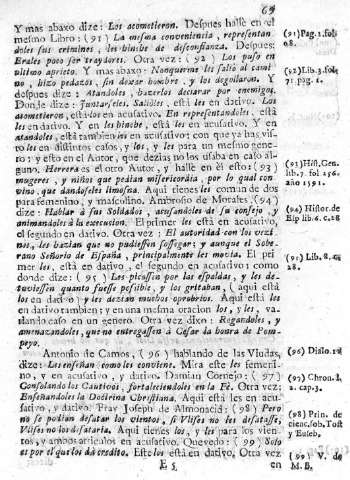 69
Y mas abaxo dize: Los acometieron. Despues hallè en el
mesmo Libro: (91) La mesma conveniencia, representan
doles sus crimines, les hinche de desconfianza. Despues:
Erales poco ser traydores. Otra vez: (92) Los puso en
ultimo aprieto. Y mas abaxo: les saliò al cami
no, hizo pedazos, sin dexar hombre, y los degollaron. Y
despues dize: Atandoles, hazerlos declarar por enemigos.
Donde dize: Juntarseles, Saliòles, està les en dativo. Los
acometieron, està los en acusativo. En representandoles, està
les en dativo. Y en les hinche, està les en acusativo. Y en
atandoles, està tambien en acusativo: con que ya has vis-
to les en distintos casos, y los, y les para un mesmo gene-
ro: y esto en el Autor, que dezias no los usaba en caso al-
guno. Herrera es el otro Autor, y hallè en èl esto: (93)
mugeres, y niños que pedian misericordia, por lo qual con-
vino, que dandoseles limosna. Aqui tienes les comun de dos
para femenino, y masculino. Ambrosio de Morales. (94)
dize: Hablar à sus Soldados, acusandoles de su consejo, y
animandoles à la execucion. El primer les està en acusativo,
el segundo en dativo. Otra vez: El autoridad con los vezi-
nos, les bazian que no pudiessen sossegar; y aunque el Sobe-
rano Señorio de España, principalmente les movia. El pri
mer les, està en dativo, el segundo en acusativo: como
donde dize: (95) Les picassen por las espaldas, y les de-
tuviessen quanto fuesse possible, y los gritaban, (aqui està
los en dativo) y les dezian muchos oprobrios. Aqui està les
en dativo tambien; y en una mesma oracion los, y les, va-
riando caso en un genero. Otra vez dixo: Rogandoles, y
amenazandoles, que no entregassen à Cesar la honra de Pom-
peyo.
Antonio de Camos, (96) hablando de las Viudas,
dize: Les enseñan como les conviene. Mira este les femeni-
no, y en acusativo, y dativo. Damian Cornejo: (97)
Consolando los Cautivos, fortaleciendoles en la Fè. Otra vez:
Enseñandoles la Doctrina Christiana. Aqui està les en acu-
sativo, y dativo. Fray Joseph de Almonacid: (98) Pero
no se podian desatar los vientos, si Vlises no les desatasse,
Vlises no los desataria. Aqui tienes los, y les para los vien-
tos, y ambos articulos en acusativo. Quevedo: (99) Solo
es por el que los dà credito. Este los està en dativo. Otra vez
E 5. en
(91) Pag. 1. fol.
68.
(92) Lib. 3. fol.
71. pag. 1.
(93) Hist. Gen.
lib. 7. fol 156.
año 1591.
(94) Histor. de
Esp lib. 6. c. 28
(95) Lib. 8. c.
28.
(96) Dialo. 14
(97) Chron. l.
2. cap. 3.
(98) Prin. de
cienc. sob. Tost
y Euseb.
(99) V. de
M. B.